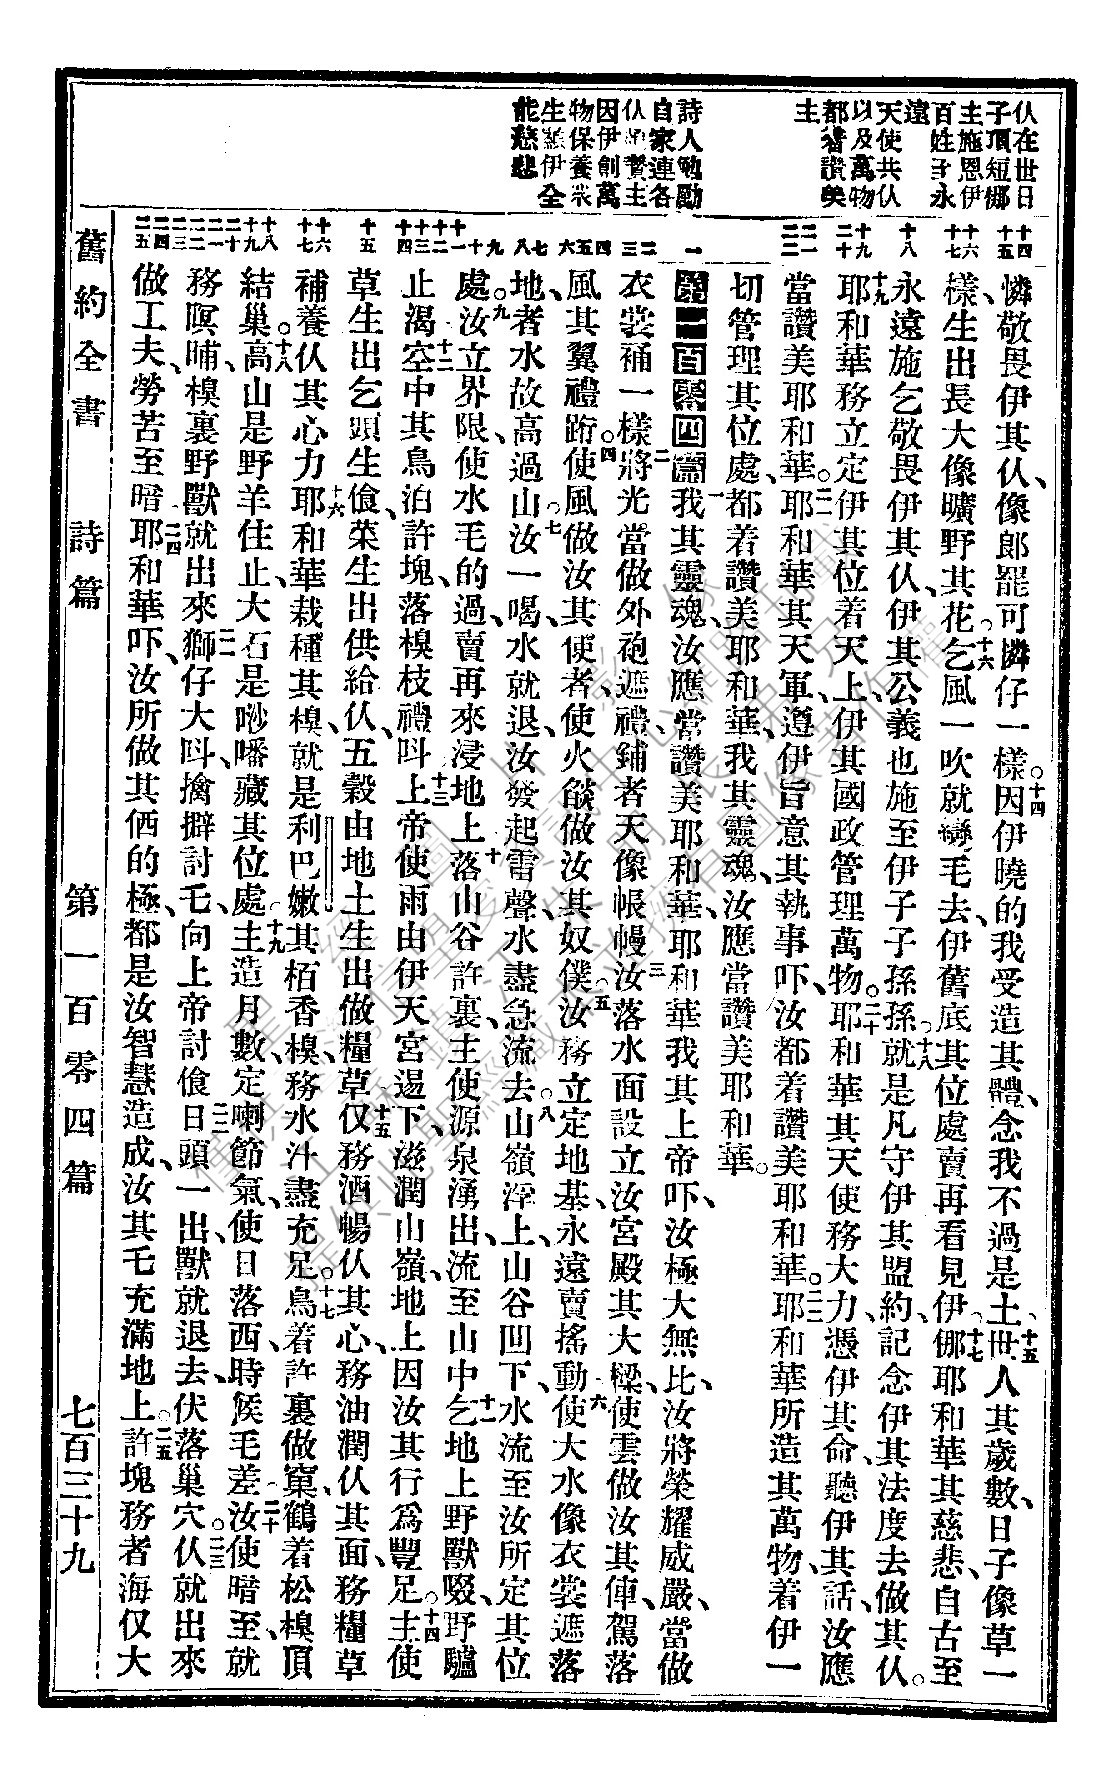 仈在世日
子頂短㑚
主施恩伊
百姓子永
遠
天使共仈
以及萬物
都着讚美
主
詩人勉勵
自家連各
仈頌讚主
因伊創萬
物保養衆
生
伊全
能慈悲
憐敬畏伊其仈、像郎罷可憐仔一樣。十四因伊曉的我受造其體、念我不過是土。十五世人其歲數、日子像草一
樣、生出長大像曠野其花。十六乞風一吹就變毛去、伊舊底其位處賣再看見伊。十七㑚耶和華其慈悲、自古至
永遠施乞敬畏伊其仈、伊其公義也施至伊子子孫孫。十八就是凡守伊其盟約、記念伊其法度去做其仈。
十九耶和華務立定伊其位着天上、伊其國政管理萬物。二十耶和華其天使務大力、憑伊其命、聽伊其話、汝應
當讚美耶和華。二一耶和華其天軍、遵伊旨意其執事吓、汝都着讚美耶和華。二二耶和華所造其萬物、着伊一
切管理其位處、都着讚美耶和華、我其靈魂、汝應當讚美耶和華。
第一百零四篇 一我其靈魂、汝應當讚美耶和華、耶和華我其上帝吓、汝極大無比、汝將榮耀威嚴、當做
衣裳裲一樣。二將光當做外袍遮禮、鋪者天像帳幔。三汝落水面設立汝宮殿其大樑、使雲做汝其俥、駕落
風其翼禮跨。四使風做汝其使者、使火燄做汝其奴僕。五汝務立定地基、永遠賣搖動。六使大水像衣裳遮落
地、者水故高過山。七汝一喝、水就退、汝發起雷聲、水盡急流去。八山嶺浮上、山谷凹下、水流至汝所定其位
處。九汝立界限、使水毛的過、賣再來浸地上。十落山谷許裏、主使源泉湧出、流至山中。十一乞地上野獸啜、野驢
止渴。十二空中其鳥泊許塊、落樹枝禮呌。十三上帝使雨由伊天宮逿下、滋潤山嶺、地上因汝其行爲豐足。十四主使
草生出乞頭生飡、菜生出供給仈、五穀由地土生出做糧草。十五仅務酒暢仈其心、務油潤仈其面、務糧草
補養仈其心力。十六耶和華栽種其樹、就是利巴嫩其栢香樹、務水汁盡充足。十七鳥着許裏做窠、鶴着松樹頂
結巢。十八高山是野羊住止、大石是𠲿𡁏藏其位處。十九主造月數、定喇節氣、使日落西、時候毛差。二十汝使暗至、就
務暝晡、樹裏野獸就出來。二一獅仔大呌、擒擗討乇、向上帝討飡。二二日頭一出、獸就退去、伏落巢穴。二三仈就出來
做工夫、勞苦至暗。二四耶和華吓、汝所做其俖的極、都是汝智慧造成、汝其乇充滿地上。二五許塊務者海仅大
舊約全書
詩篇
第一百零四篇
七百三十九